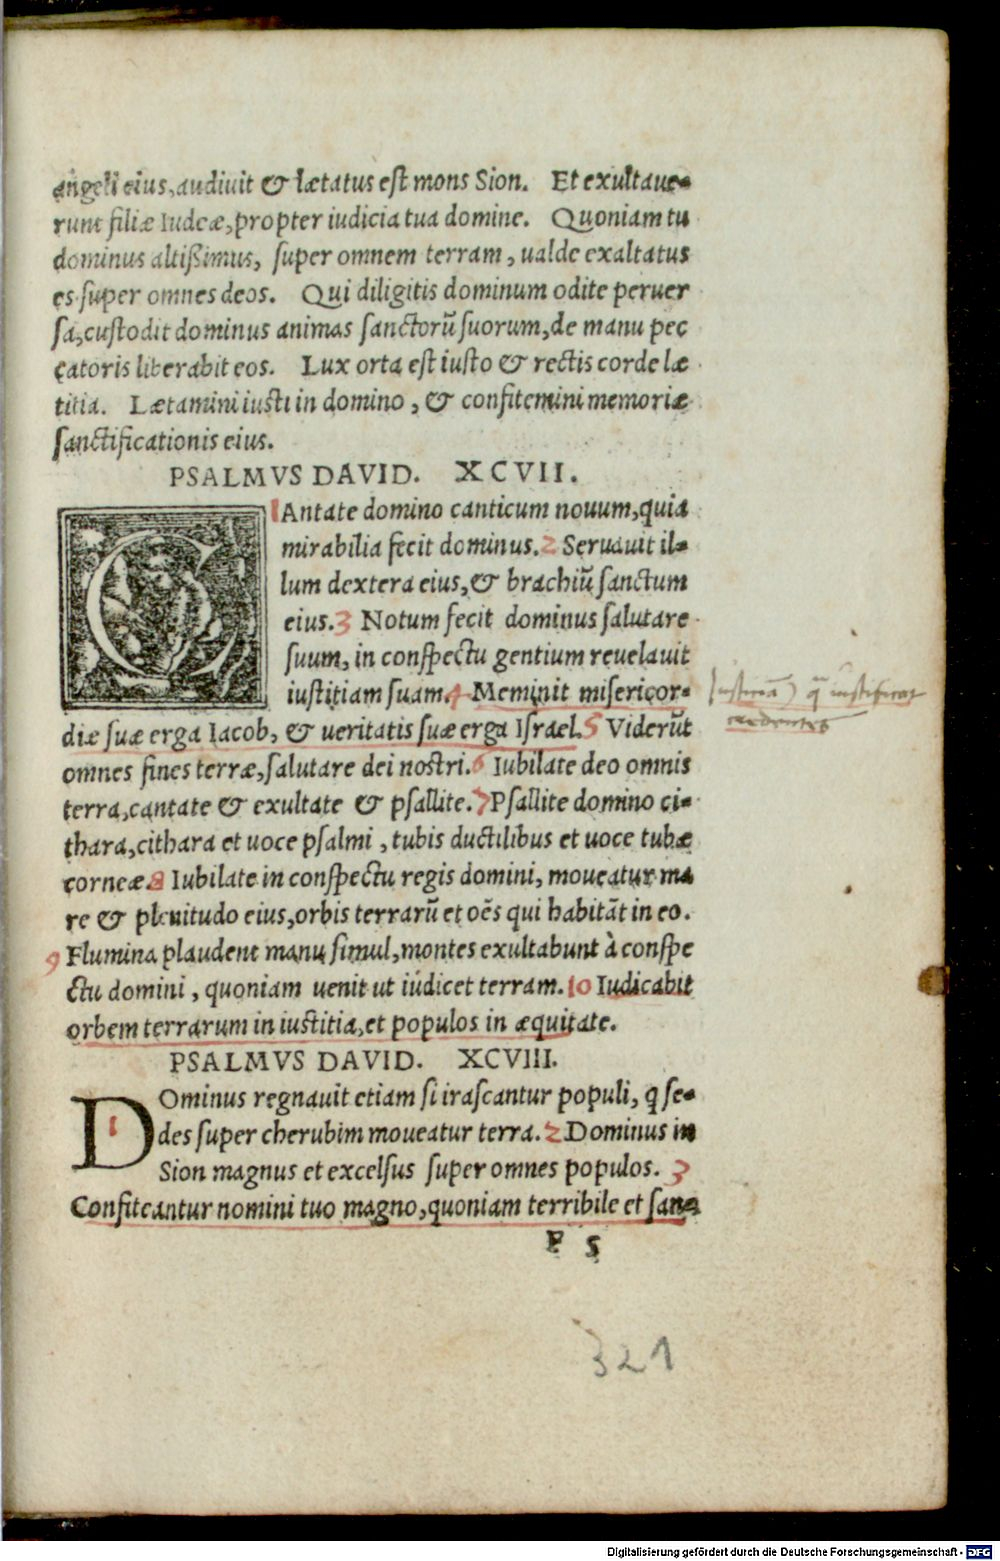 angeli eius, audiuit & lætatus est mons Sion. Et exultaue-
runt filiæ Iudeæ, propter iudicia tua domine. Quoniam tu
dominus altißimus, super omnem terram, ualde exaltatus
es super omnes deos. Qui diligitis dominum odite peruer
sa, custodit dominus animas sanctorū suorum, de manu pec
catoris liberabit eos. Lux orta est iusto & rectis corde læ
titia. Lætamini iusti in domino, & confitemini memoriæ
sanctificationis eius.
PSALMVS DAVID. XCVII.
C 1 Antate domino canticum nouum, quia
mirabilia fecit dominus. 2 Seruauit il-
lum dextera eius, & brachiū sanctum
eius. 3 Notum fecit dominus salutare
suum, in conspectu gentium reuelauit
iustitiam suam. 4 Meminit misericor-
iusticiā) q̄ iustificat
credentes
diæ suæ erga Iacob, & ueritatis suæ erga Israel. 5 Viderūt
omnes fines terræ, salutare dei nostri. 6 Iubilate deo omnis
terra, cantate & exultate & psallite. 7 Psallite domino ci-
thara, cithara et uoce psalmi, tubis ductilibus et uoce tubæ
corneæ. 8 Iubilate in conspectu regis domini, moueatur ma
re & plenitudo eius, orbis terrarū et oēs qui habitāt in eo.
9 Flumina plaudent manu simul, montes exultabunt à conspe
ctu domini, quoniam uenit ut iudicet terram. 10 Iudicabit
orbem terrarum in iustitia, et populos in æquitate.
PSALMVS DAVID. XCVIII.
D 1 Ominus regnauit etiam si irascantur populi, q se-
des super cherubim moueatur terra. 2 Dominus in
Sion magnus et excelsus super omnes populos. 3
Confiteantur nomini tuo magno, quoniam terribile et san-
P 5
321
Digitalisierung gefördert durch die Deutsche Forschungsgemeinschaft - DFG